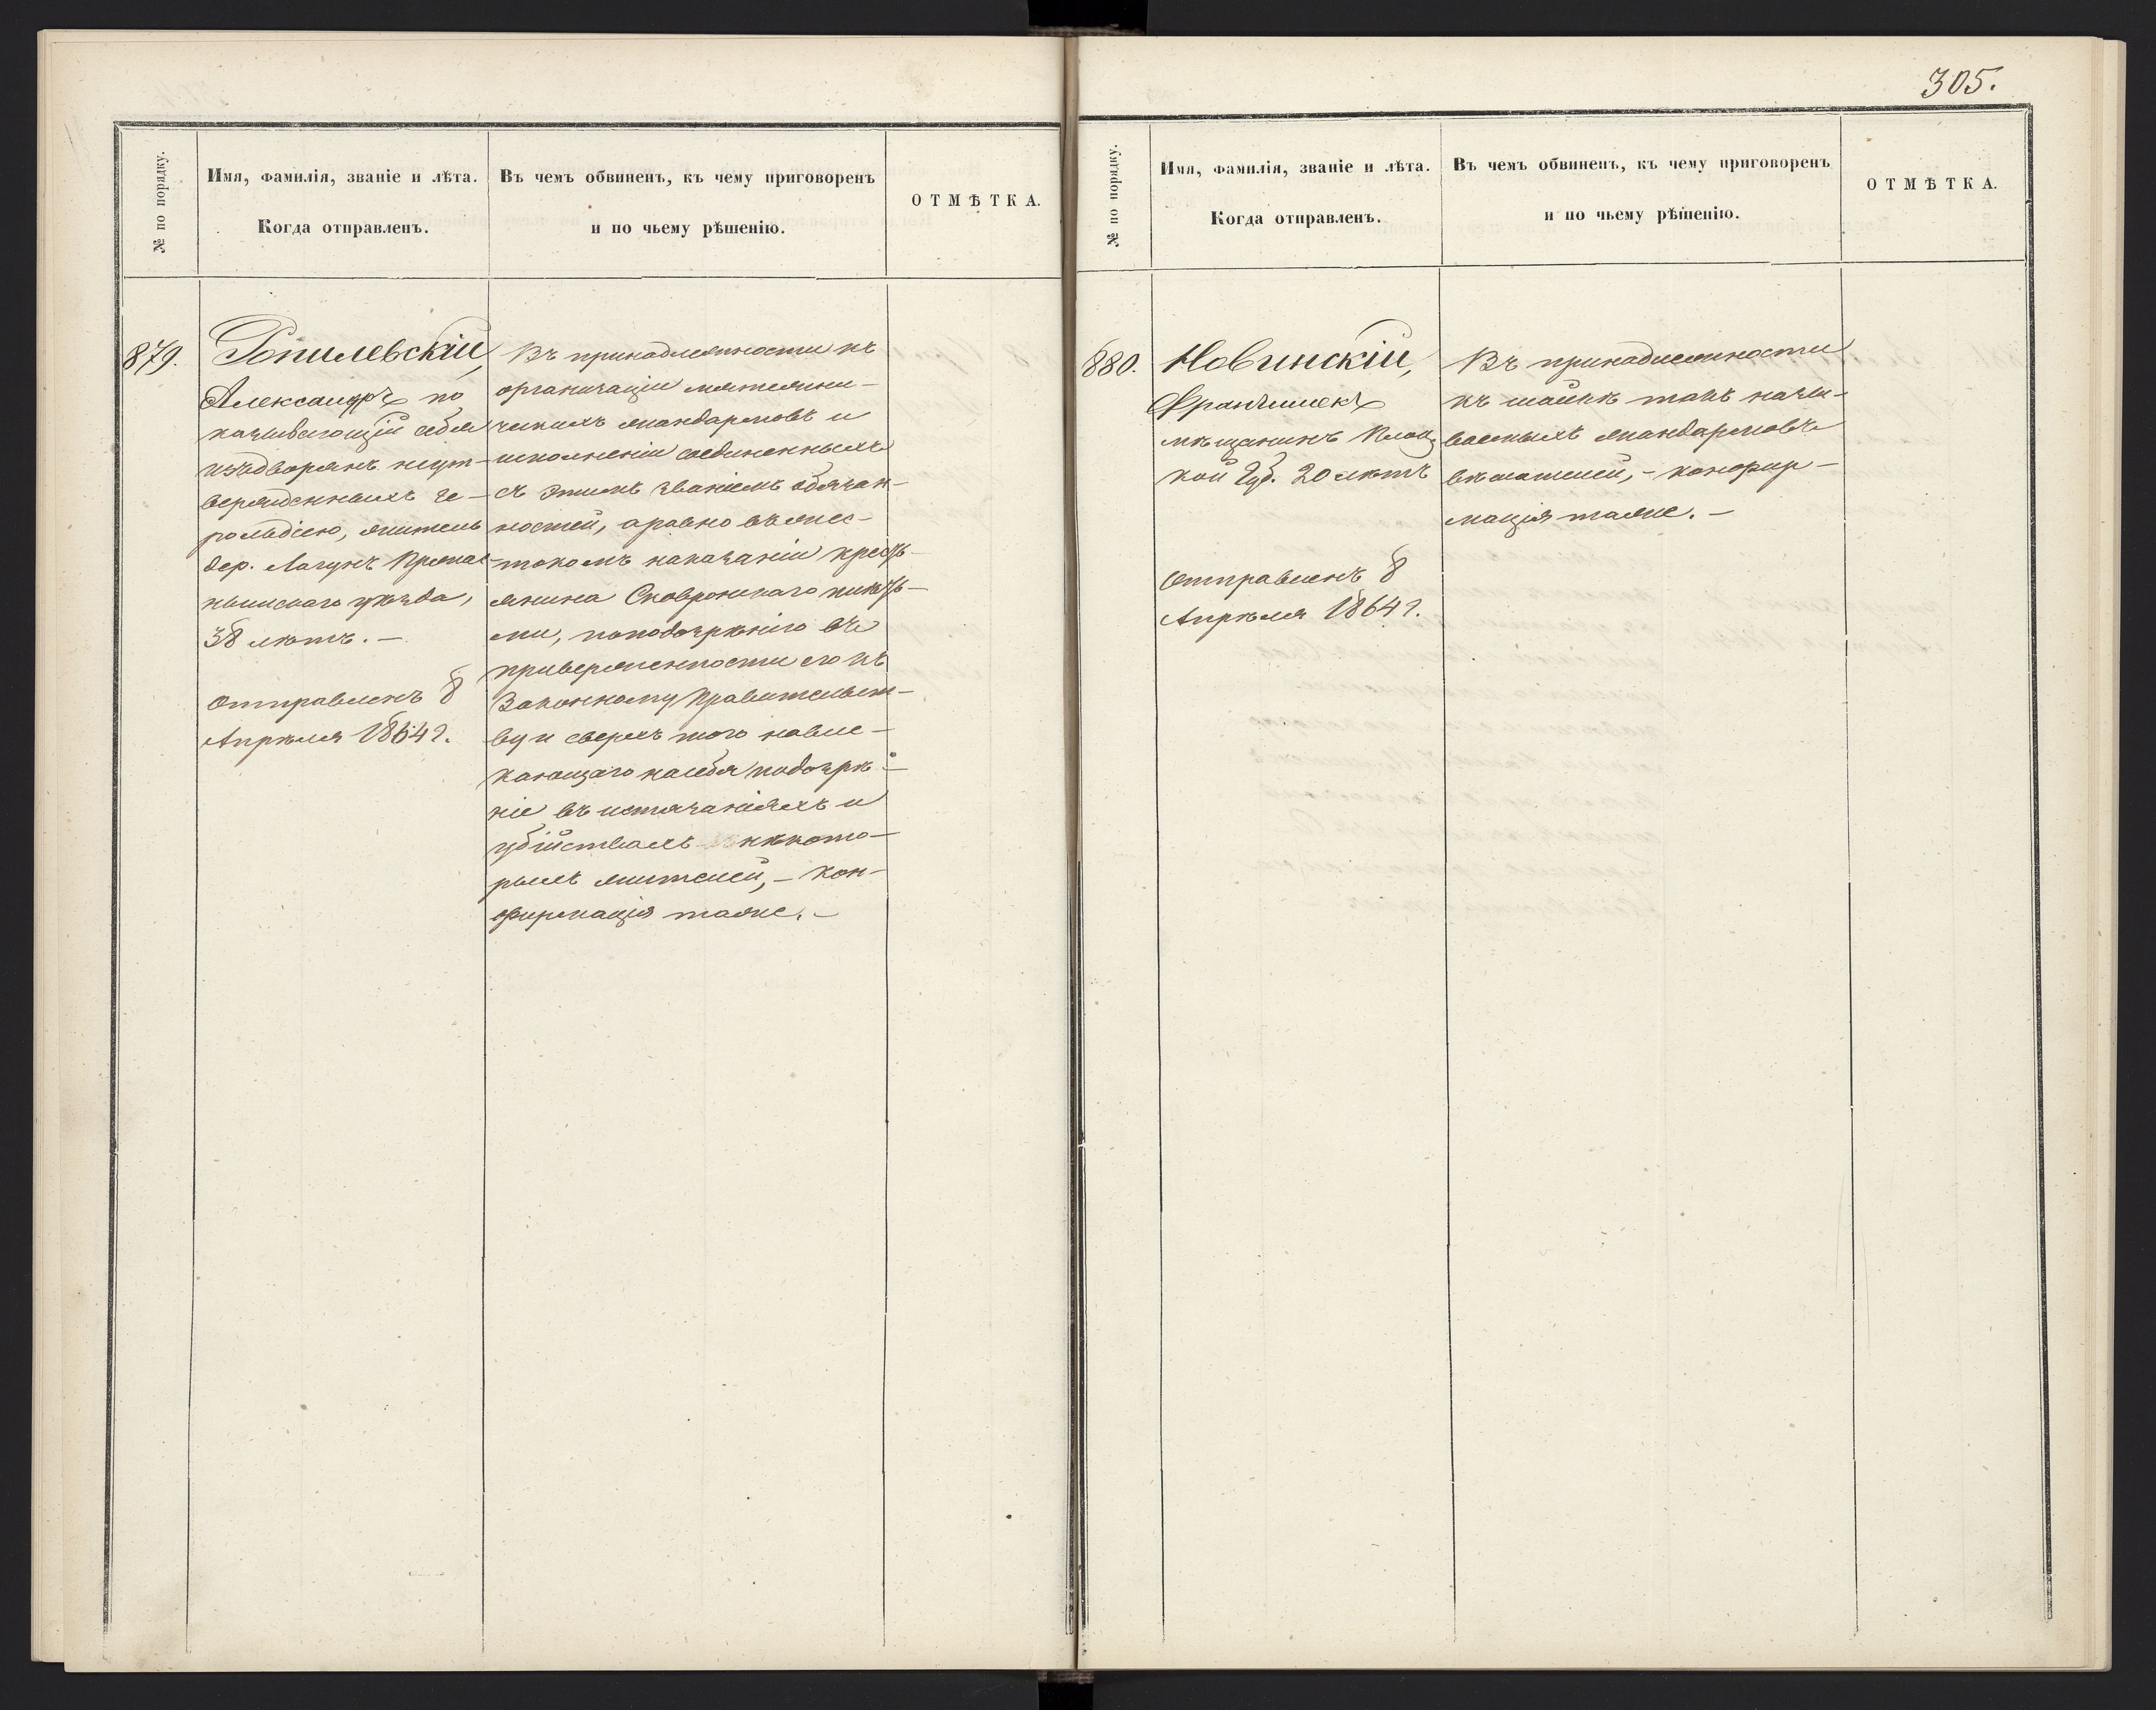 305.
№ по порядку.
Имя, фамилія, званіе и лѣта.
Когда отправленъ.
Въ чемъ обвиненъ, къ чему приговоренъ
и по чьему рѣшенію.
ОТМѢТКА.
879.
Ропилевскій,
Александръ по
казывающій себя
изъ дворянъ неут-
вержденныхъ Ге-
рольдіею, житель
дер. Лагунъ
уѣзда,
38 лѣтъ. —
Отправленъ 8
Апрѣля 1864 г.
Въ принадлежности къ
организаціи мятежни-
ческихъ жандармовъ и
исполненіи соединенныхъ
съ этимъ званіемъ обязан-
ностей, а равно въ жес-
токомъ наказаніи кресть-
янина Сковронскаго плетьь-
ми, по подозрѣнію въ
приверженности его къ
Законному Правительст-
ву и сверхъ того навле-
кающаго на себя подозрѣ-
ніе въ истязаніяхъ и
убійствахъ нѣкото-
рыхъ жителей, — кон-
фирмація таже. —
№ по порядку.
Имя, фамилія, званіе и лѣта.
Когда отправленъ.
Въ чемъ обвиненъ, къ чему приговоренъ
и по чьему рѣшенію.
ОТМѢТКА.
880.
Новинскій,
Франтишекъ
мѣщанинъ Плоц
кой Губ. 20 лѣтъ
Отправленъ 8
Апрѣля 1864 г.
Въ принадлежности
къ шайкѣ такъ назы-
ваемыхъ жандармовъ
вѣшателей, — конфир-
мація таже. —